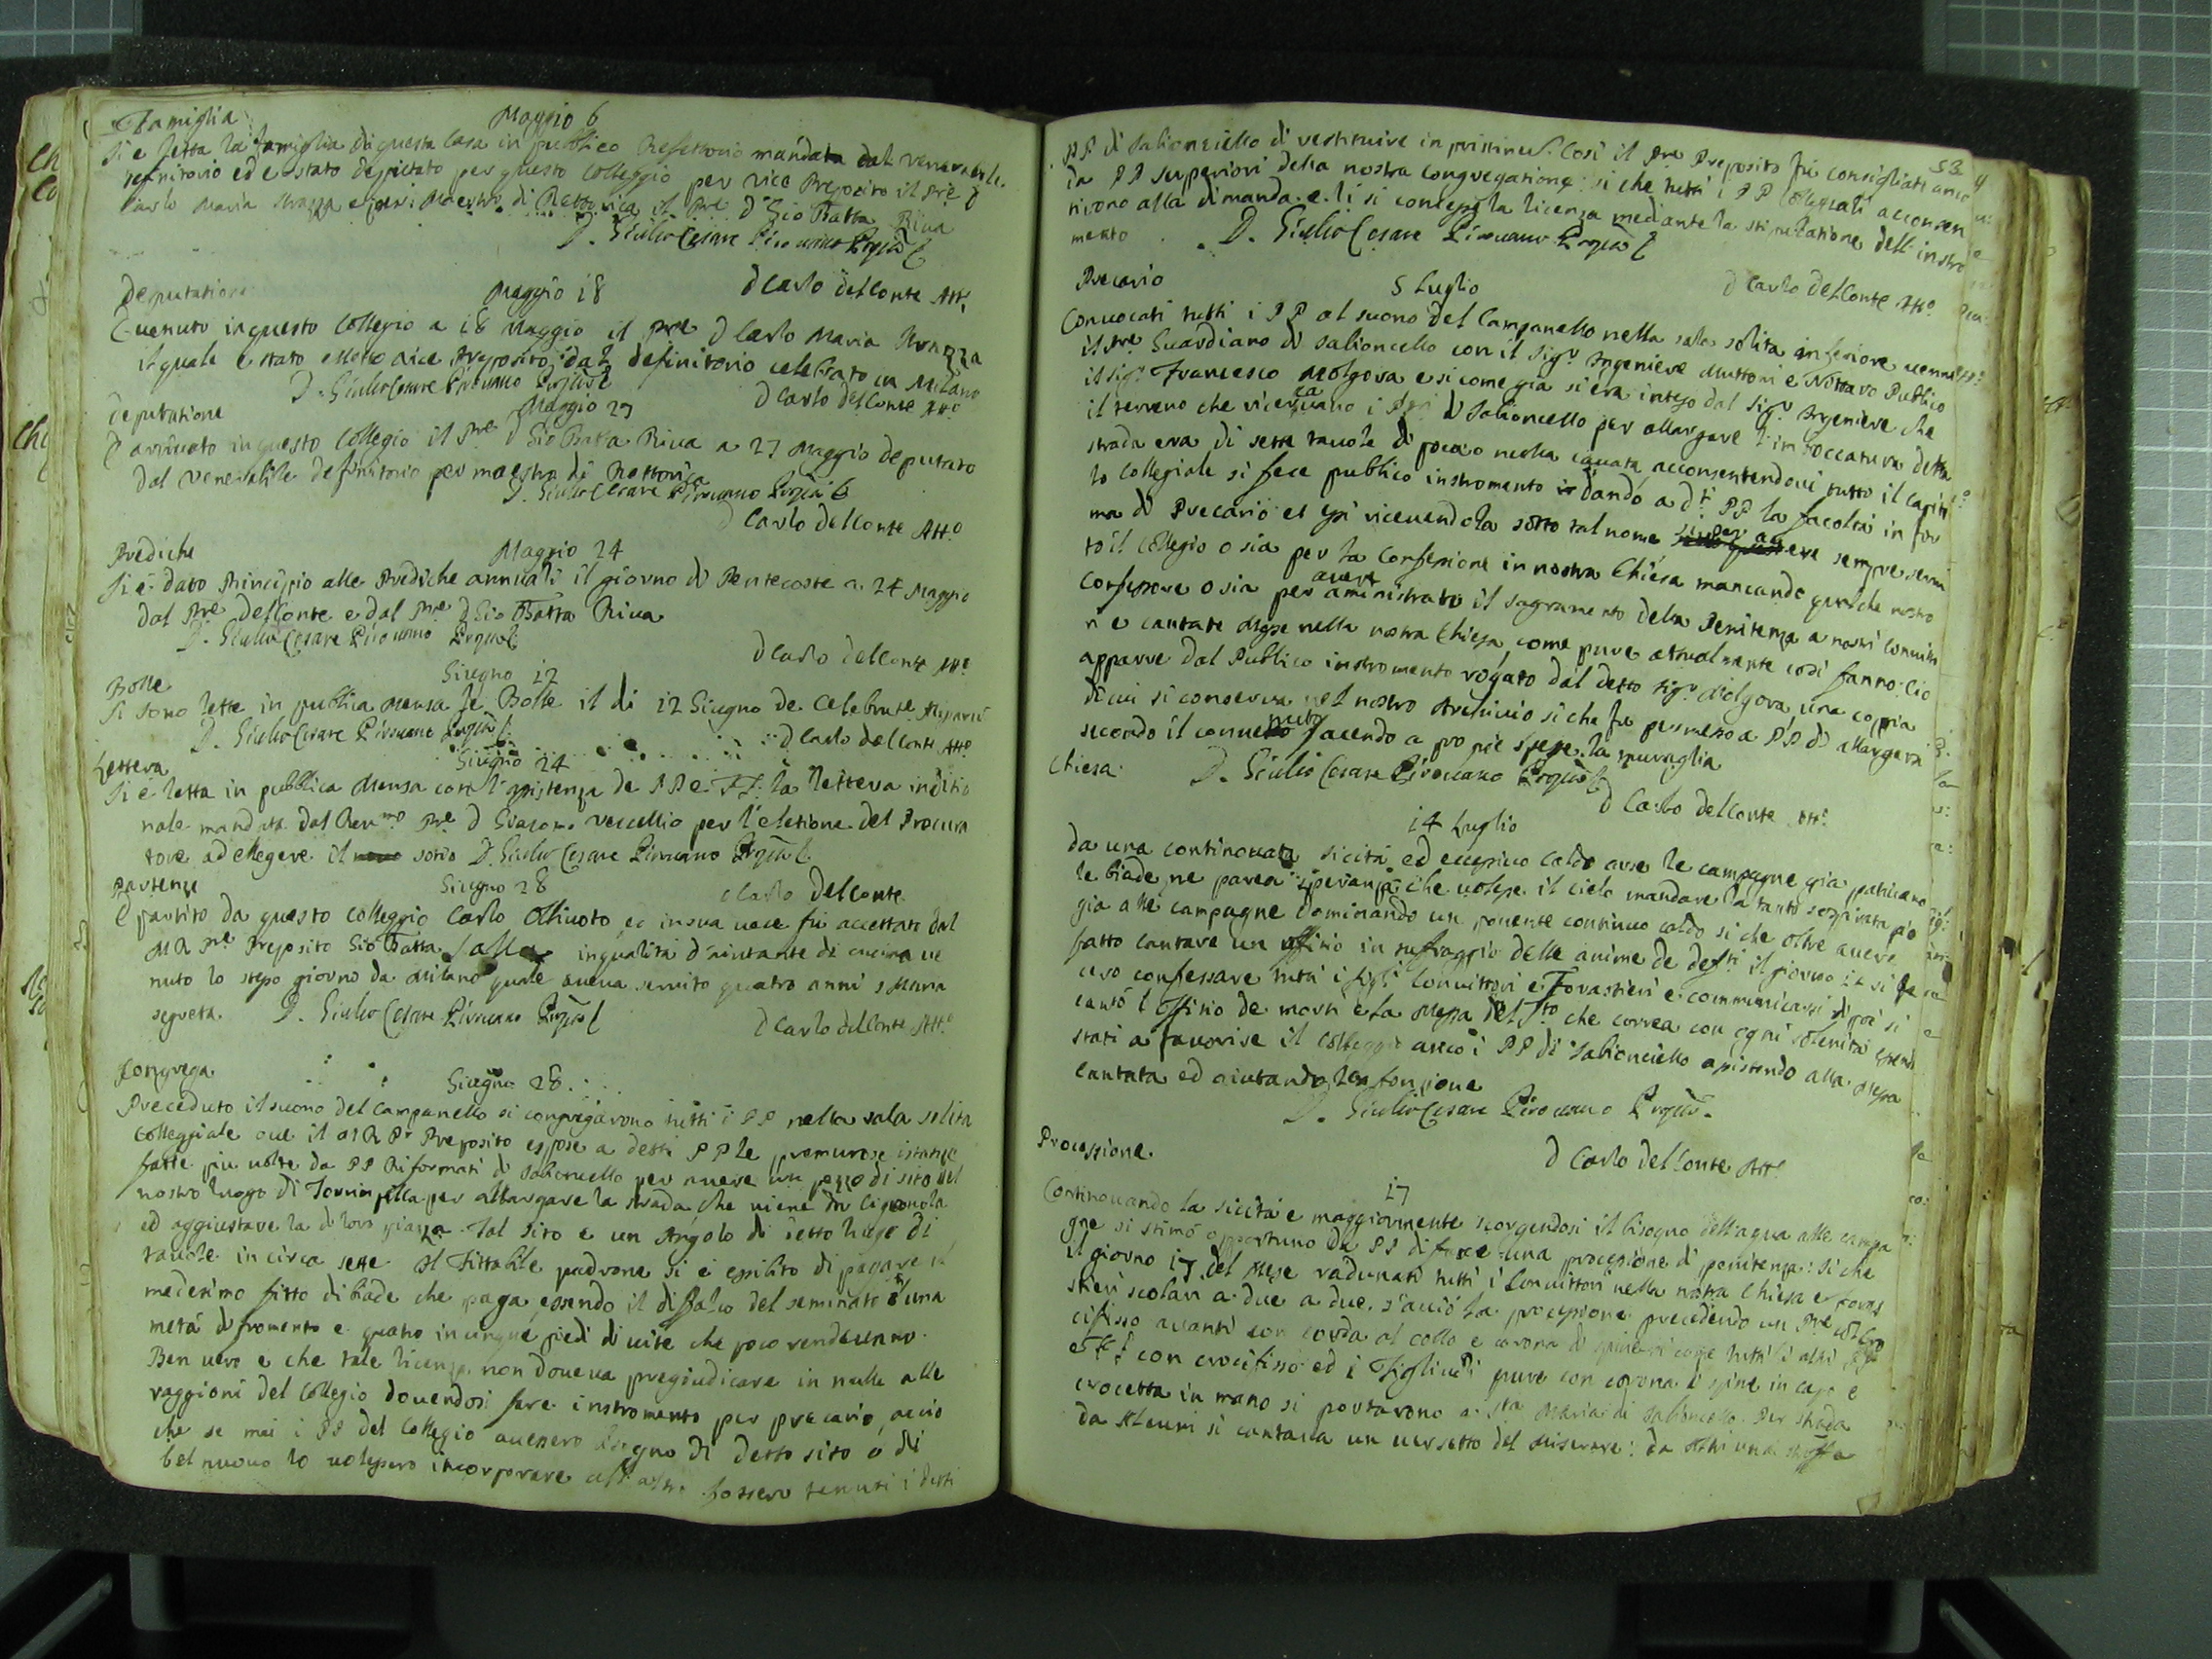 Famiglia
Maggio 6
Si è letta la famiglia di questa Casa in publico Refettorio mandata dal venerabile
definitorio ed è stato deputato per questo Colleggio per vice Preposito il Pre D
Carlo Maria Strazza e per Maestro di Rettorica il Pre D Gio Batta Riva
D. Giulio Cesare Pirovano
D Carlo del Conte Att.
Deputatione
Maggio 18
È venuto in questo Collegio a 18 Maggio il Pre D Carlo Maria Strazza
il quale è stato eletto vice Preposito dal definitorio celebrato in Milano
D. Giulio Cesare Pirovano
D Carlo del Conte Att.o
deputatione
Maggio 23
È arrivato in questo Collegio il Pre D Gio Batta Riva a 23 Maggio deputato
dal venerabile definitorio per maestro di Rettorica
D. Giulio Cesare Pirovano
D Carlo del Conte Att.o
Prediche
Maggio 24
Si è dato Principio alle Prediche annuali il giorno di Pentecoste a 24 Maggio
dal Pre del Conte e dal Pre D Gio Batta Riva
D. Giulio Cesare Pirovano
D Carlo del Conte Att.o
Bolle
Giugno 12
Si sono lette in publica Mensa le Bolle il di 12 Giugno de Celebrne
D. Giulio Cesare Pirovano
D Carlo del Conte Att.o
Lettera
Giugno 24
Si è letta in publica Mensa con l'assistenza de PP e FF la lettera
nale mandata dal Revmo Pre D Giacomo Vercellio per l'eletione del Procura
tore ad elegere il sotio D. Giulio Cesare Pirovano
Partenze
Giugno 28
D Carlo del Conte
È partito da questo colleggio Carlo ed in sua vece fù accettato dal
M R Pre Preposito Gio Batta Salla in qualità d'aiutante di cucina ve
nuto lo stesso giorno da Milano quale aveva servito quatro anni s Maria
segreta. D. Giulio Cesare Pirovano
D Carlo del Conte Att.o
Congrega
Giugno 28
Preceduto il suono del Campanello si congregarono tutti i PP nella sala solita
Colleggiale ove il M R Pr Preposito espose a detti PP le premurose istanze
fatte piu volte da PP Riformati di Sabioncello per avere un pezzo di sito del
nostro luogo di per allargare la strada che viene da
ed aggiustare la di loro piazza. Tal sito è un Angolo di detto luogo di
tavole in circa sette. Il Fittabile padrone si è esibito di pagare il
medesimo fitto di biade che paga, essendo il difalco del seminato una
metà di fromento e quatro in cinque piedi di vite che poco rendevano.
Ben vero è che tale licenza non doveva pregiudicare in nulla alle
raggioni del Collegio dovendosi fare instromento per precario, acciò
che se mai i PP del Collegio avessero bisogno di detto sito ò di
bel nuovo lo volessero incorporare all'altro fossero tenuti i detti
53
PP di Sabionciello di restituire in pristinum. Così il Pre Preposito fù consigliato anco
da PP superiori della nostra congregatione: si che tutti i PP Collegiali acconsen
tirono alla dimanda e li si concesse la licenza mediante la stipulatione dell'instro
mento
D. Giulio Cesare Pirovano
D Carlo del Conte Att.o
Precario
5 Luglio
Convocati tutti i PP al suono del Campanello nella sala solita inferiore venne
il Pre Guardiano di Sabioncello con il Sigr Ingeniere Muttoni e Nottaro Publico
il sigr Francesco Molgora e si come già si era inteso dal sigr Ingeniere che
il terreno che ricercavano i Pri di Sabioncello per allargare l'imboccatura della
strada era di sette tavole di poca o nulla cavata acconsentendovi tutto il Capito
lo Collegiale si fece publico instromento dando a dti PP la facoltà in for
ma di Precario et essi ricevendola sotto tal nome sempre servi
to il Collegio o sia per la Confessione in nostra Chiesa mancando qualche nostro
Confessore o sia per avere aministrato il sagramento della Penitenza a nostri Convitto
ri e cantate Messe nella nostra Chiesa, come pure attualmente così fanno. Ciò
apparre dal Publico instromento rogato dal detto sigr Molgora, una coppia
di cui si conserva nel nostro Archivio si che fu permesso a PP di allargarsi
secondo il convenuto facendo a proprie spese la muraglia
Chiesa
D. Giulio Cesare Pirovano
D Carlo del Conte Att.o
14 Luglio
Da una continovata siccità ed eccessivo caldo arse le campagne già pativano
le biade, ne parea speranza che volesse il cielo mandare la tanto sospirata piog
gia alle campagne dominando un ponente continuo caldo si che oltre avere
fatto cantare un offitio in suffraggio delle anime de defti il giorno 14 si fe
cero confessare tutti i figli Convittori e Forastieri e communicarsi di poi si
cantò l'offitio de morti e la Messa del Sto che correa con ogni solenità essendo
stati a favorire il Colleggio anco i PP di Sabionciello assistendo alla Messa
cantata ed aiutando la fonzione
D. Giulio Cesare Pirovano
D Carlo del Conte Att.o
Processione
17
Continovando la siccità e maggiormente scorgendosi il bisogno dell'aqua alle campa
gne si stimò opportuno da PP di fare una processione di penitenza: si che
il giorno 17 del Mese radunati tutti i Convittori nella nostra Chiesa e foras
tieri scolari a due a due s'aviò la processione precedendo un Pre col Cro
cifisso avanti con corda al collo e corona di spine si come tutti li altri PP
e FF con crocifisso ed i Figliuoli pure con corona di spine in capo e
crocetta in mano si portarono a Sta Maria di Sabioncello. Per strada
da Alcuni si cantava un versetto del Miserere: da altri una